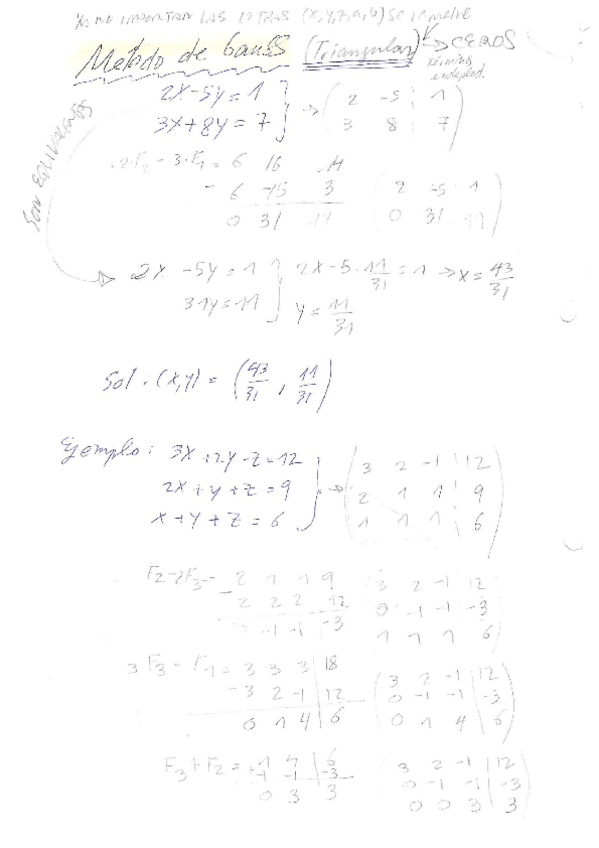 Ya no importan las letras (x,y,z,a,b) se resuelve
Método de Gauss (Triangular) → CEROS
términ. independ.
2x-5y=1
3x+8y=7 } → ( 2 -5 | 1
3 8 | 7 )
Son equivalentes
2·F2 - 3·F1 = 6 16 14
- 6 -15 3
0 31 11
( 2 -5 1
0 31 11 )
2x -5y=1
31y=11
2x-5·11/31=1 → x=43/31
y=11/31
Sol: (x,y) = (43/31, 11/31)
Ejemplo: 3x+2y-z=12
2x+y+z=9
x+y+z=6
( 3 2 -1 | 12
2 1 1 | 9
1 1 1 | 6 )
F2-2F3= 2 1 1 9
- 2 2 2 12
0 -1 -1 -3
3 2 -1 12
0 -1 -1 -3
1 1 1 6
3F3 - F1 = 3 3 3 | 18
-3 2 -1 | 12
0 1 4 | 6
( 3 2 -1 | 12
0 -1 -1 | -3
0 1 4 | 6 )
F3+F2 = 1 4 | 6
+ -1 -1 | -3
0 3 3
( 3 2 -1 | 12
0 -1 -1 | -3
0 0 3 | 3 )